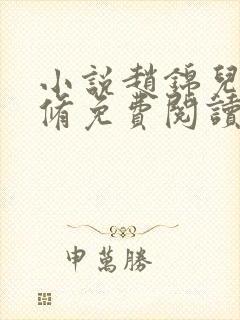 小說趙錦兒
脩免費閱讀
申萬勝